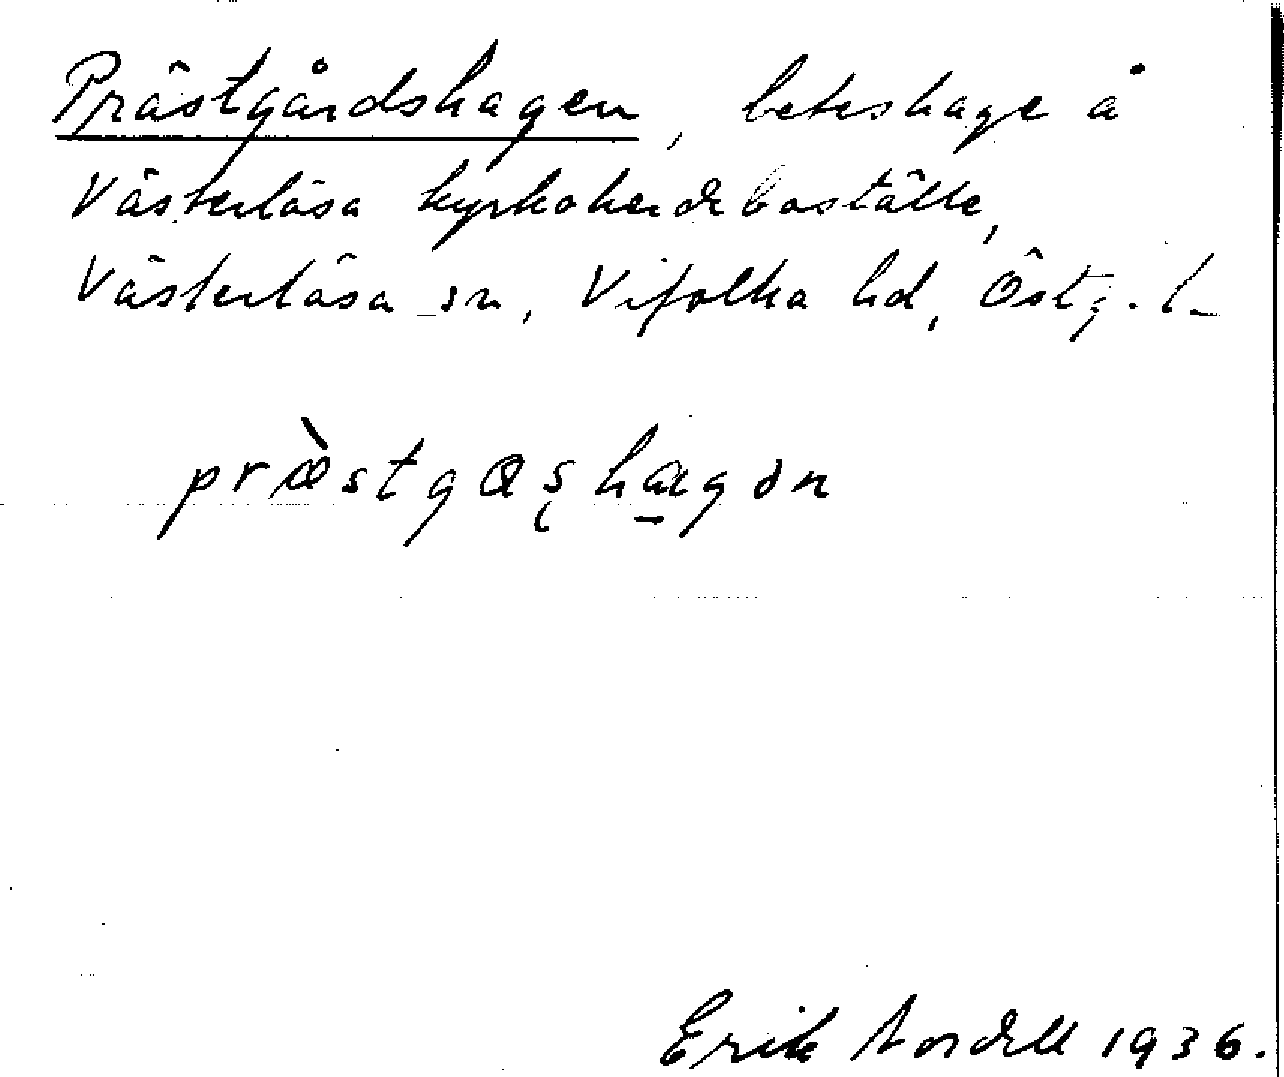 Prästgårdshagen, beteshage å
Västerlösa kyrkoherdeboställe,
Västerlösa sn, Vifolka hd, Östg. l.
pr&#x00e6;&#x0300;stgɷʂhɑ̲gən
Erik Nordell 1936.